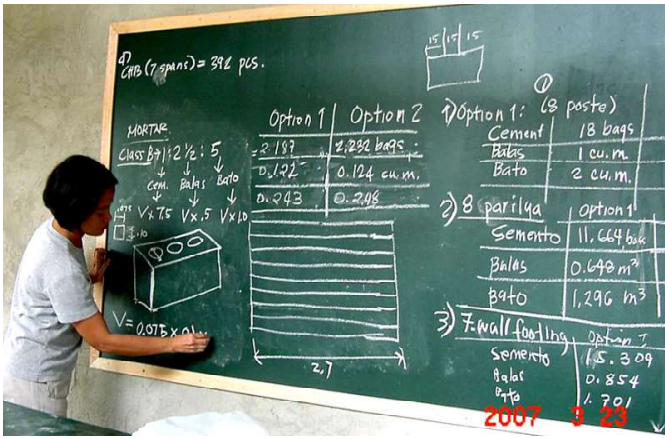 d)
CHB (7 spans) = 392 pcs.
MORTAR
Class B → 1 : 2 ½ : 5
Cem. Balas Bato
V x 7.5 V x .5 V x 1.0
.075
.10
V = 0.075 x 0.1
Option 1 Option 2
= 2.187 2.232 bags
0.122 0.124 cu.m.
0.243 0.248
2.7
15 15 15
1
1) Option 1: (8 poste)
Cement 18 bags
Balas 1 cu.m.
Bato 2 cu.m.
2) 8 parilya Option 1
Semento 11.664 bags
Balas 0.648 m³
Bato 1.296 m³
3) 7-wall footing Option 1
Semento 15.309
Balas 0.854
Bato 1.701
2007 3 23